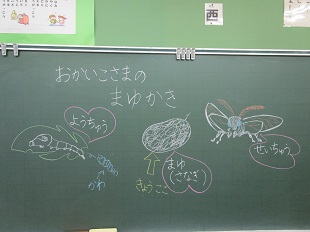 西
おかいこさまの
まゆかき
ようちゅう
かわ
きょうここ
まゆ
(さなぎ)
せいちゅう